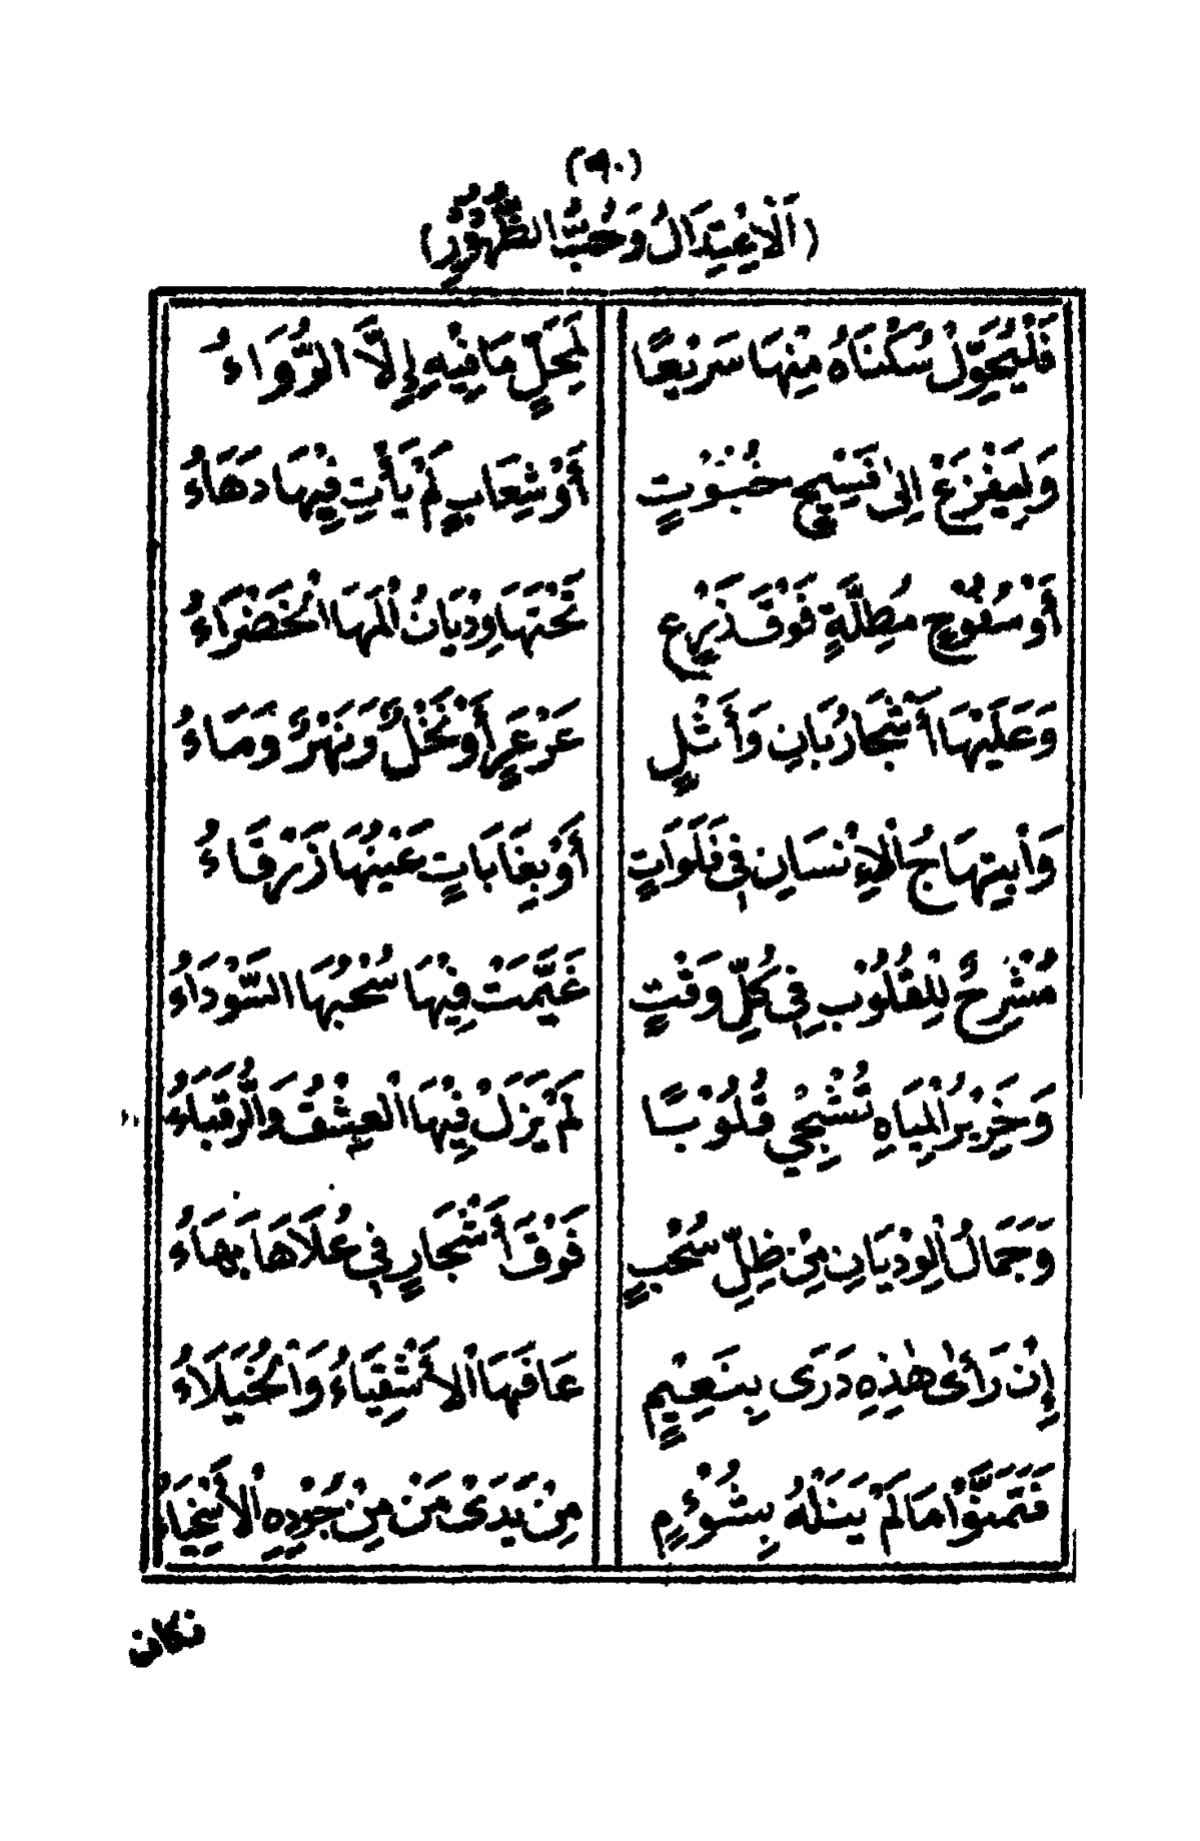 (٩٠)
(اَلْاِعْتِدَالُ وَحُبُّ الظُّهُوْرِ)
فَلْيُحَوِّلْ سُكْنَاهُ مِنْهَا سَرِيْعًا لِمَحَلٍّ مَافِيْهِ إِلَّا الرُّوَاءُ
وَلْيَفْزَعْ اِلىٰ فَسِيْحٍ خُبُوْتٍ أَوْشِعَابٍ لَمْ يَأْتِ فِيْهَا دَهَاءُ
أَوْ سُفُوْحٍ مُطِلَّةٍ فَوْقَ ذَرْعٍ تَحْتَهَا وِدْيَانُ الْمَهَا الْخَضْرَاءُ
وَعَلَيْهَا أَشْجَارُبَانٍ وَأَثْلٍ عَرْعَرٍ أَوْنَخْلٌ وَنَهْرٌ وَمَاءُ
وَابْتِهَاجُ الْاِنْسَانِ فِي فَلَوَاتٍ أَوْبِغَابَاتٍ عَيْنُهَا زَرْقَاءُ
مُشْرِحٌ لِلْقُلُوْبِ فِي كُلِّ وَقْتٍ غَيَّمَتْ فِيْهَا سُحْبُهَا السَّوْدَاءُ
وَخَرِيْرُ الْمِيَاهِ تُشْجِي قُلُوْبًا لَمْ يَزَلْ فِيْهَا الْعِشْقُ وَالرُّقَبَاءُ
وَجَمَالُ الْوِدْيَانِ مِنْ ظِلِّ سُحْبٍ فَوْقَ أَشْجَارٍ فِي عُلَاهَا بَهَاءُ
إِنْ رَأىٰ هٰذِهِ دَرَى بِنَعِيْمٍ عَافَهَا الْأَشْقِيَاءُ وَالْخُيَلَاءُ
فَتَمَنَّوْا مَالَمْ يَنَلْهُ بِشُوْءٍ مِنْ يَدَىْ مَنْ مِنْ جُوْدِهِ الْأَسْخِيَاءُ